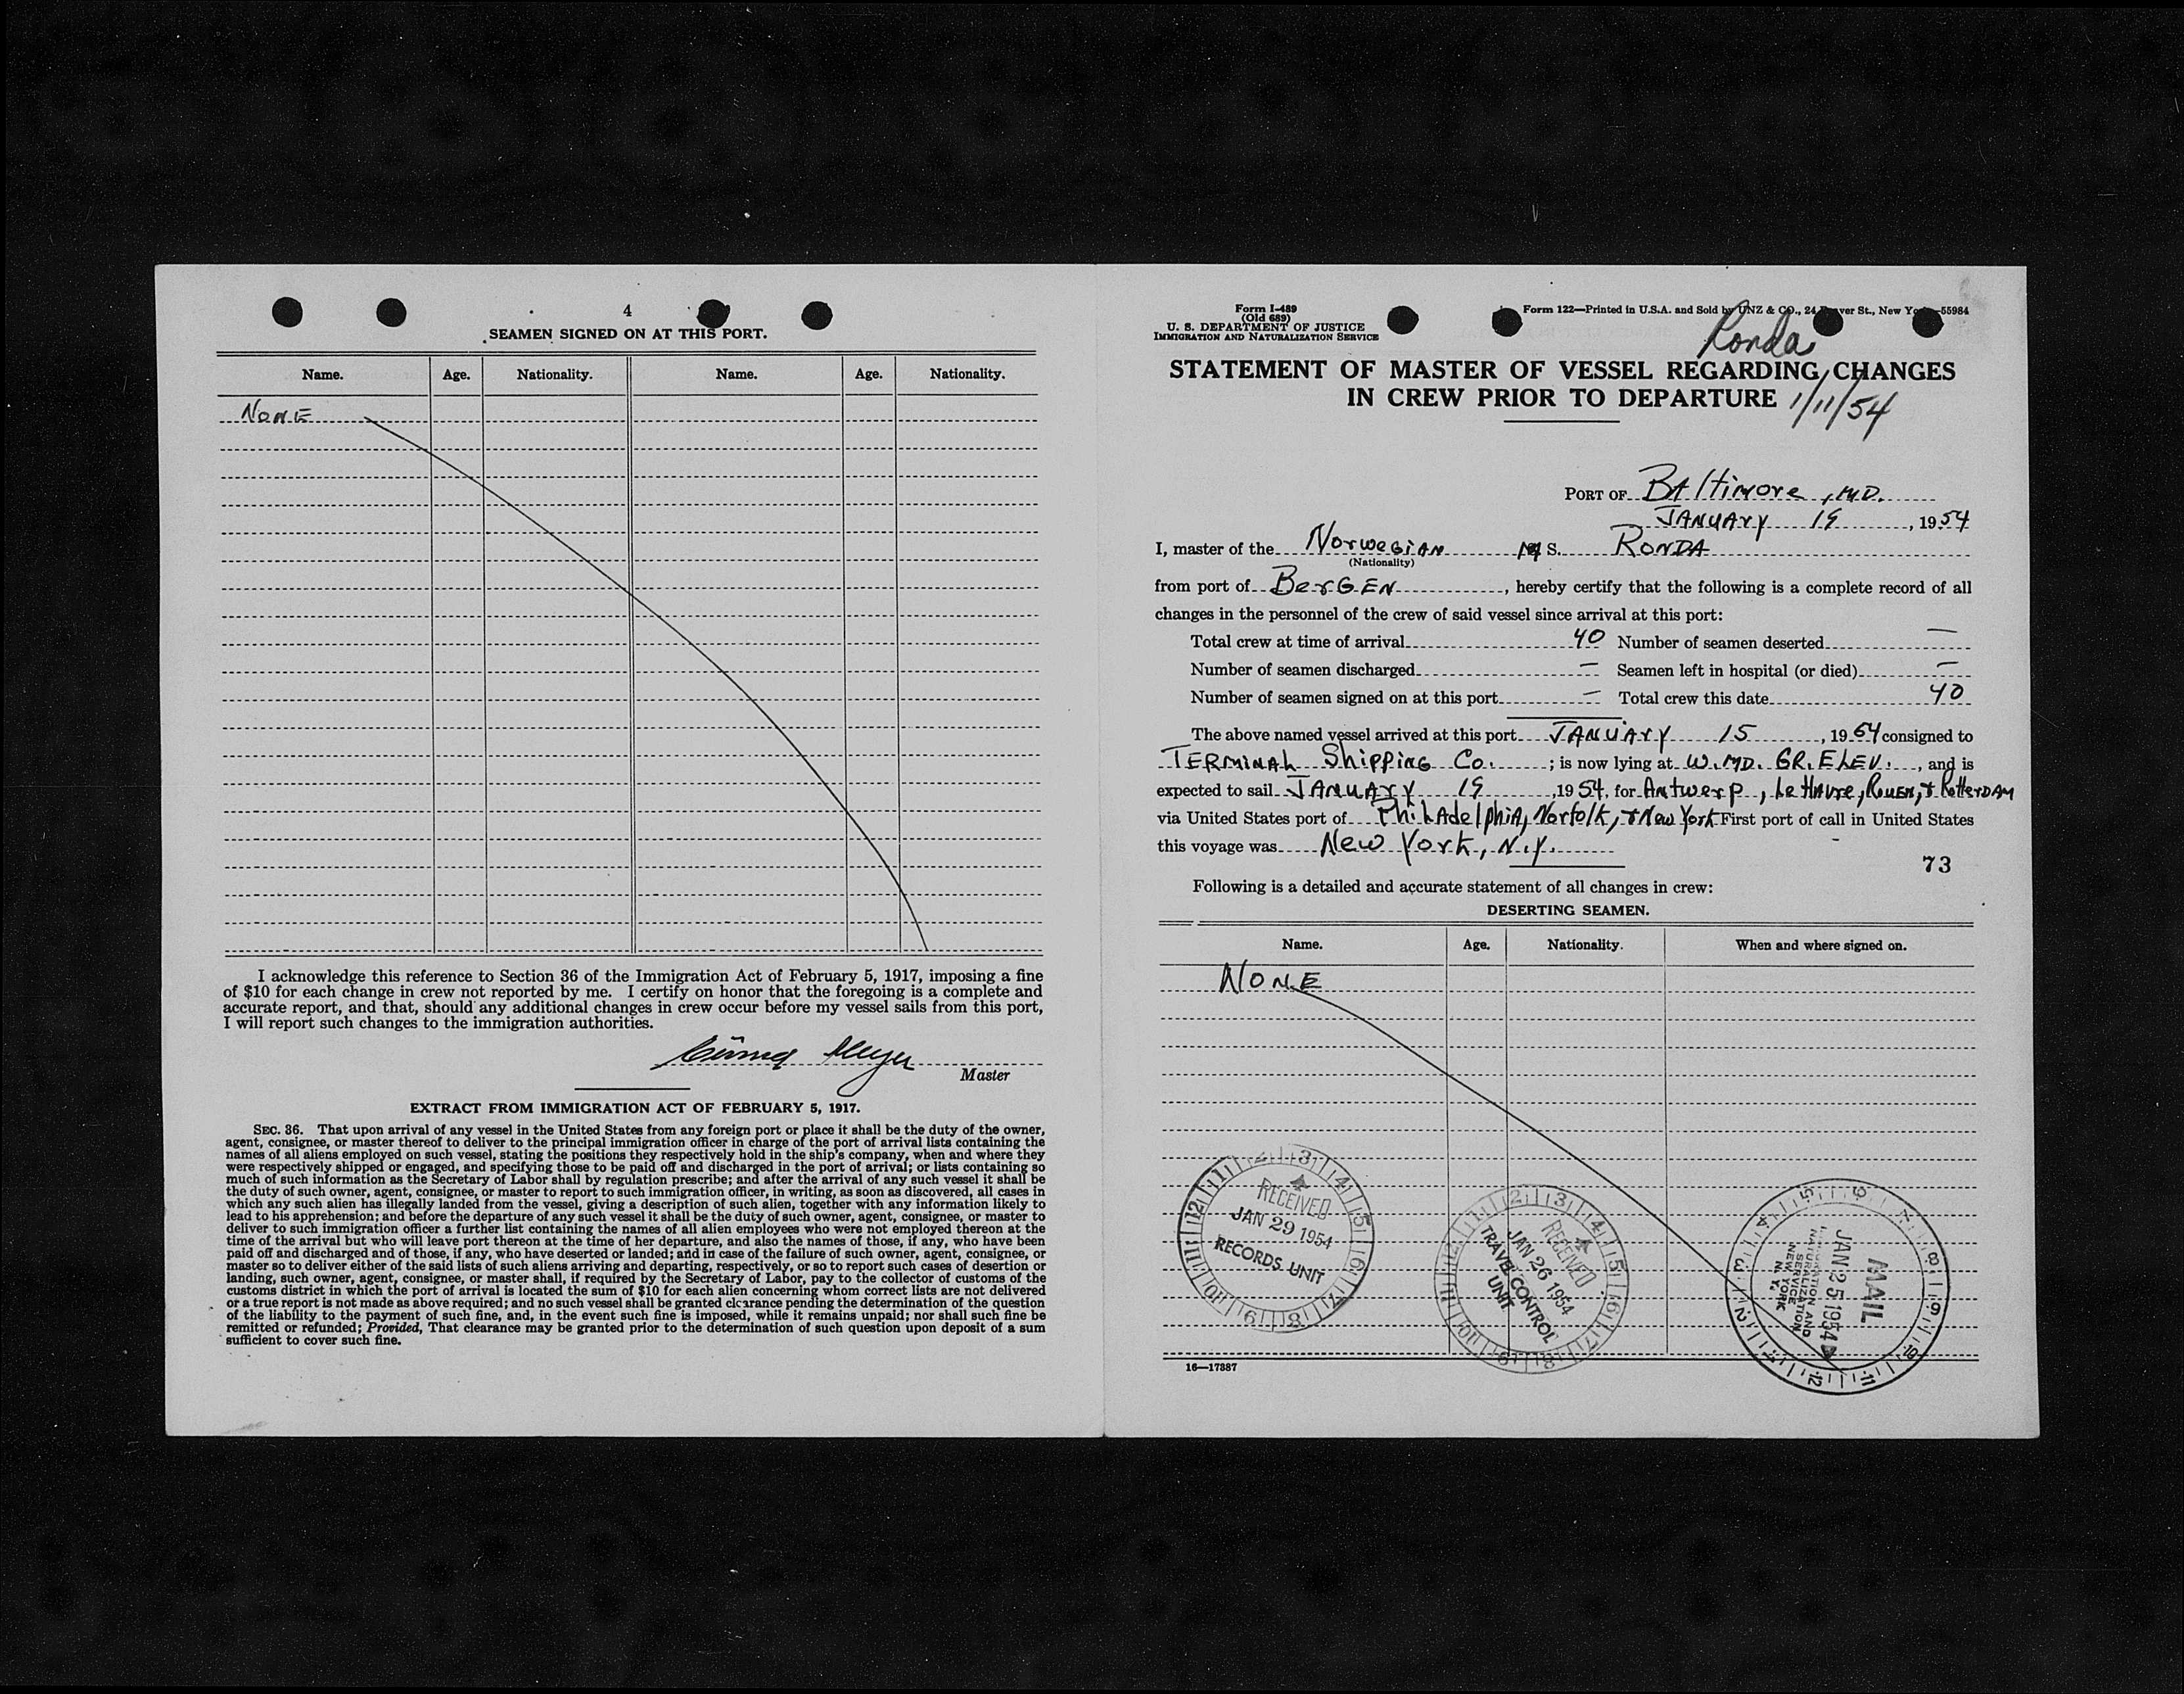 4
SEAMEN SIGNED ON AT THIS PORT.
Name. Age. Nationality. Name. Age. Nationality.
NONE
I acknowledge this reference to Section 36 of the Immigration Act of February 5, 1917, imposing a fine
of $10 for each change in crew not reported by me. I certify on honor that the foregoing is a complete and
accurate report, and that, should any additional changes in crew occur before my vessel sails from this port,
I will report such changes to the immigration authorities.
Meyer
Master
EXTRACT FROM IMMIGRATION ACT OF FEBRUARY 5, 1917.
SEC. 36. That upon arrival of any vessel in the United States from any foreign port or place it shall be the duty of the owner,
agent, consignee, or master thereof to deliver to the principal immigration officer in charge of the port of arrival lists containing the
names of all aliens employed on such vessel, stating the positions they respectively hold in the ship's company, when and where they
were respectively shipped or engaged, and specifying those to be paid off and discharged in the port of arrival; or lists containing so
much of such information as the Secretary of Labor shall by regulation prescribe; and after the arrival of any such vessel it shall be
the duty of such owner, agent, consignee, or master to report to such immigration officer, in writing, as soon as discovered, all cases in
which any such alien has illegally landed from the vessel, giving a description of such alien, together with any information likely to
lead to his apprehension; and before the departure of any such vessel it shall be the duty of such owner, agent, consignee, or master to
deliver to such immigration officer a further list containing the names of all alien employees who were not employed thereon at the
time of the arrival but who will leave port thereon at the time of her departure, and also the names of those, if any, who have been
paid off and discharged and of those, if any, who have deserted or landed; and in case of the failure of such owner, agent, consignee, or
master so to deliver either of the said lists of such aliens arriving and departing, respectively, or so to report such cases of desertion or
landing, such owner, agent, consignee, or master shall, if required by the Secretary of Labor, pay to the collector of customs of the
customs district in which the port of arrival is located the sum of $10 for each alien concerning whom correct lists are not delivered
or a true report is not made as above required; and no such vessel shall be granted clearance pending the determination of the question
of the liability to the payment of such fine, and, in the event such fine is imposed, while it remains unpaid; nor shall such fine be
remitted or refunded; Provided, That clearance may be granted prior to the determination of such question upon deposit of a sum
sufficient to cover such fine.
Form I-489
(Old 689)
U. S. DEPARTMENT OF JUSTICE
IMMIGRATION AND NATURALIZATION SERVICE
Form 122—Printed in U.S.A. and Sold by UNZ & CO., 24 ver St., New Yo 55984
Ronda
STATEMENT OF MASTER OF VESSEL REGARDING CHANGES
IN CREW PRIOR TO DEPARTURE 1/11/54
PORT OF BAltimore, MD.
JANUARY 19, 1954
I, master of the Norwegian M S. RONDA
(Nationality)
from port of BerGEN, hereby certify that the following is a complete record of all
changes in the personnel of the crew of said vessel since arrival at this port:
Total crew at time of arrival 40 Number of seamen deserted —
Number of seamen discharged — Seamen left in hospital (or died) —
Number of seamen signed on at this port — Total crew this date 40
The above named vessel arrived at this port JANUARY 15, 1954 consigned to
TERMINAL Shipping Co.; is now lying at W. MD. GR. ELEV., and is
expected to sail JANUARY 19, 1954, for Antwerp, Le Havre, Rouen, & Rotterdam
via United States port of PhilAdelphiA, Norfolk, & New York First port of call in United States
this voyage was New York, N.Y.
73
Following is a detailed and accurate statement of all changes in crew:
DESERTING SEAMEN.
Name. Age. Nationality. When and where signed on.
NONE
RECEIVED
JAN 29 1954
RECORDS UNIT
RECEIVED
JAN 26 1954
TRAVEL CONTROL
UNIT
MAIL
JAN 25 1954
IMMIGRATION AND
NATURALIZATION
SERVICE
NEW YORK
N. Y.
16—17887